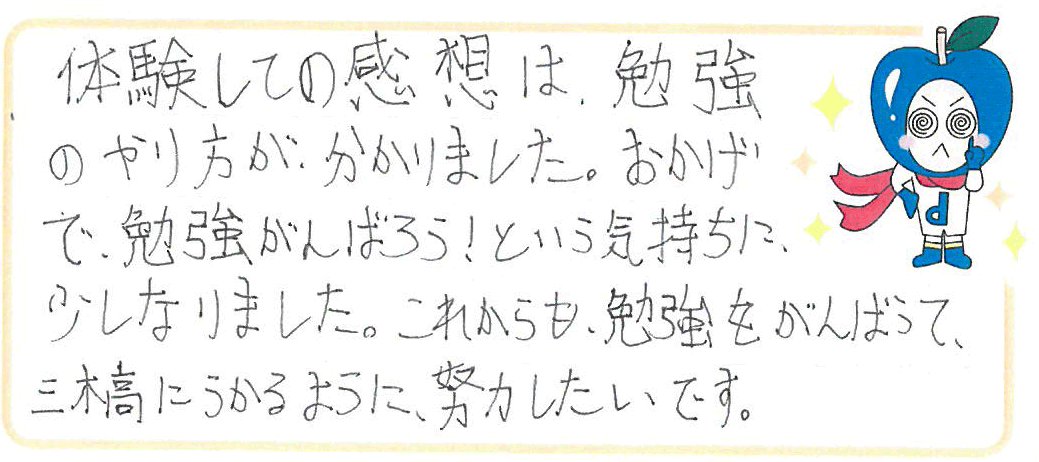 体験しての感想は、勉強
のやり方が、分かりました。おかげ
で、勉強がんばろう!という気持ちに、
少しなりました。これからも、勉強をがんばって、
三木高にうかるように、努力したいです。
d